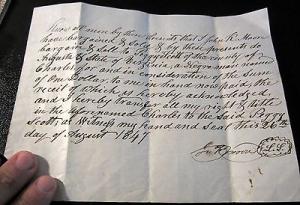 Know all men by these presents that I John R. Moon
have bargained & Sold & by these presents do
bargain & Sale to Perry Scott of the county of
Augusta & State of Virginia, a Negro man named
Charles for and in consideration of the Sum
of One Dollar, to me in hand now paid the
receit of which is hereby acknowledged
and I hereby transfer all my right & title
in the above named Charles to the said Perry
Scott, as Witness my hand and seal this 26th
day of August 1847
Jno R Moon L.S.